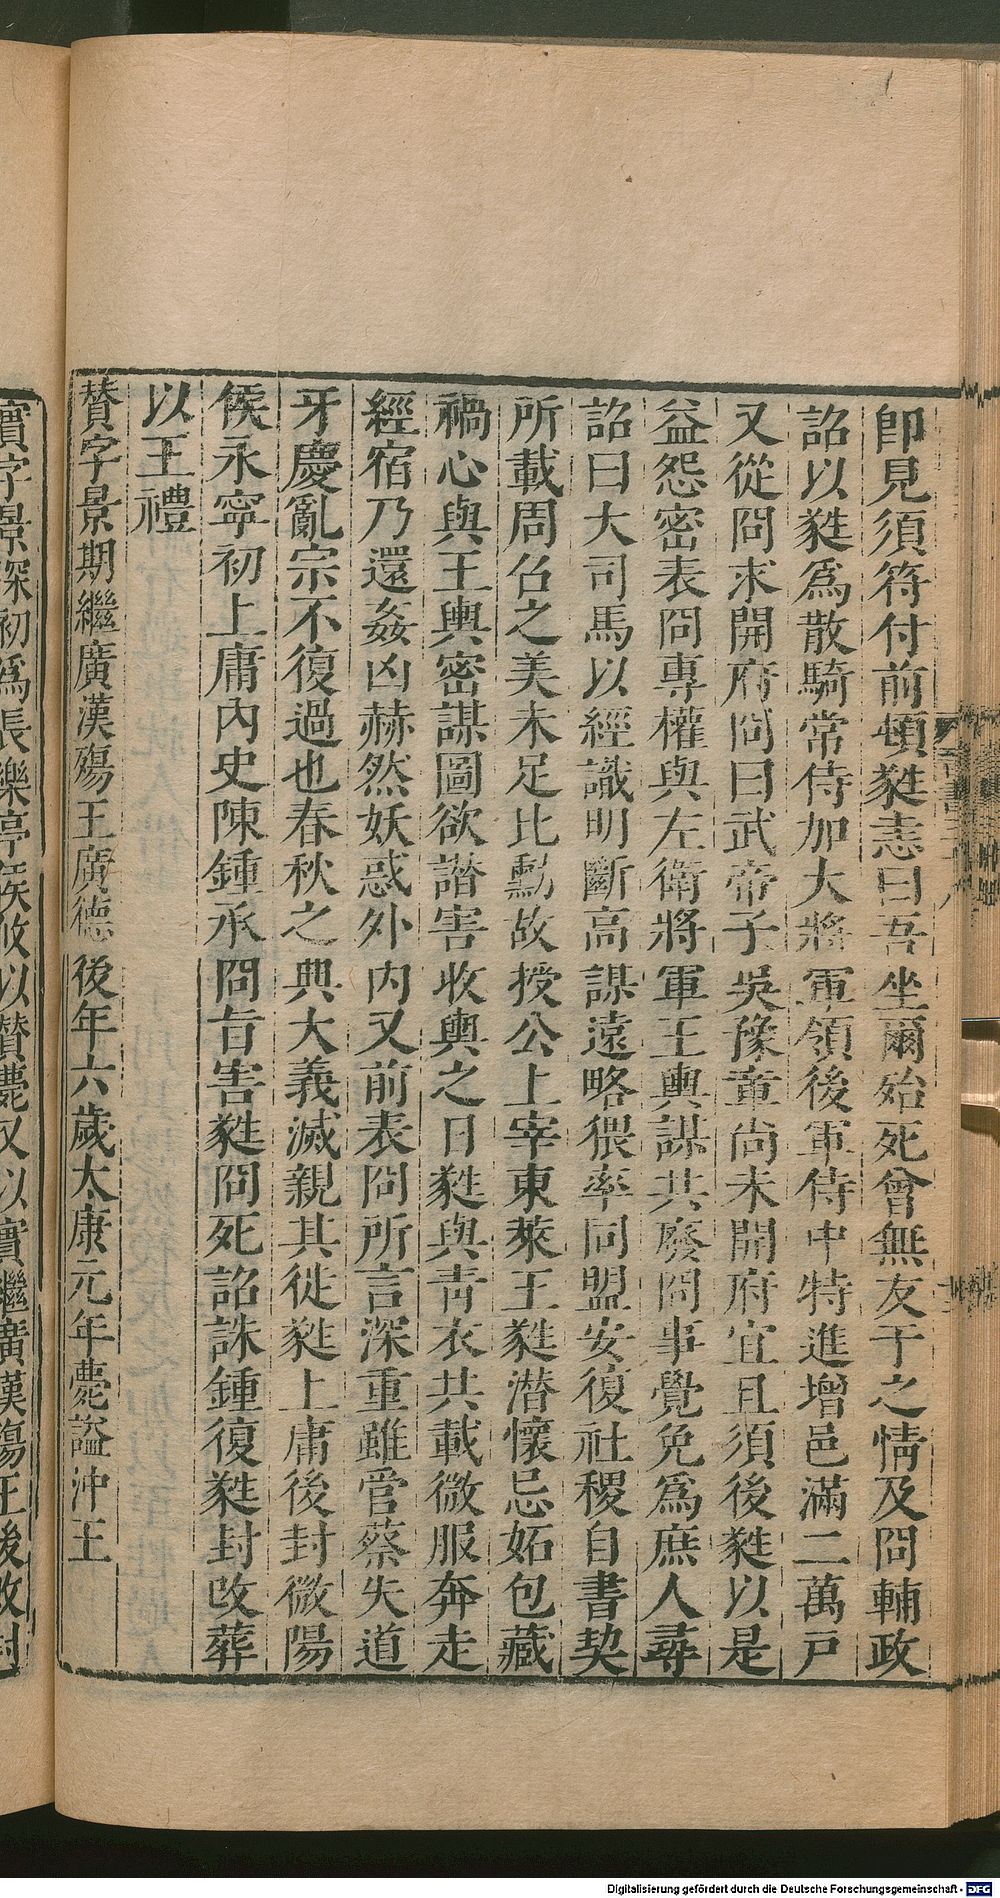 即見須符付前頓蕤恚曰吾坐爾殆死曾無友于之情及冏輔政
詔以蕤爲散騎常侍加大將軍領後軍侍中特進增邑滿二萬戸
又從冏求開府冏曰武帝子吳豫章尚未開府宜且須後蕤以是
益怨密表冏專權與左衛將軍王輿謀共廢冏事覺免爲庶人尋
詔曰大司馬以經識明斷高謀遠略猥率同盟安復社稷自書契
所載周召之美未足比勳故授公上宰東萊王蕤潜懷忌妬包藏
禍心與王輿密謀圖欲譖害收輿之日蕤與青衣共載微服奔走
經宿乃還姦凶赫然妖惑外内又前表冏所言深重雖管蔡失道
牙慶亂宗不復過也春秋之典大義滅親其徙蕤上庸後封微陽
侯永寧初上庸内史陳鍾承冏旨害蕤冏死詔誅鍾復蕤封改葬
以王禮
贊字景期繼廣漢殤王廣德後年六歲太康元年薨謚沖王
實字景深初爲長樂亭侯攸以贊薨又以實繼廣漢殤王後改封
Digitalisierung gefördert durch die Deutsche Forschungsgemeinschaft - DFG